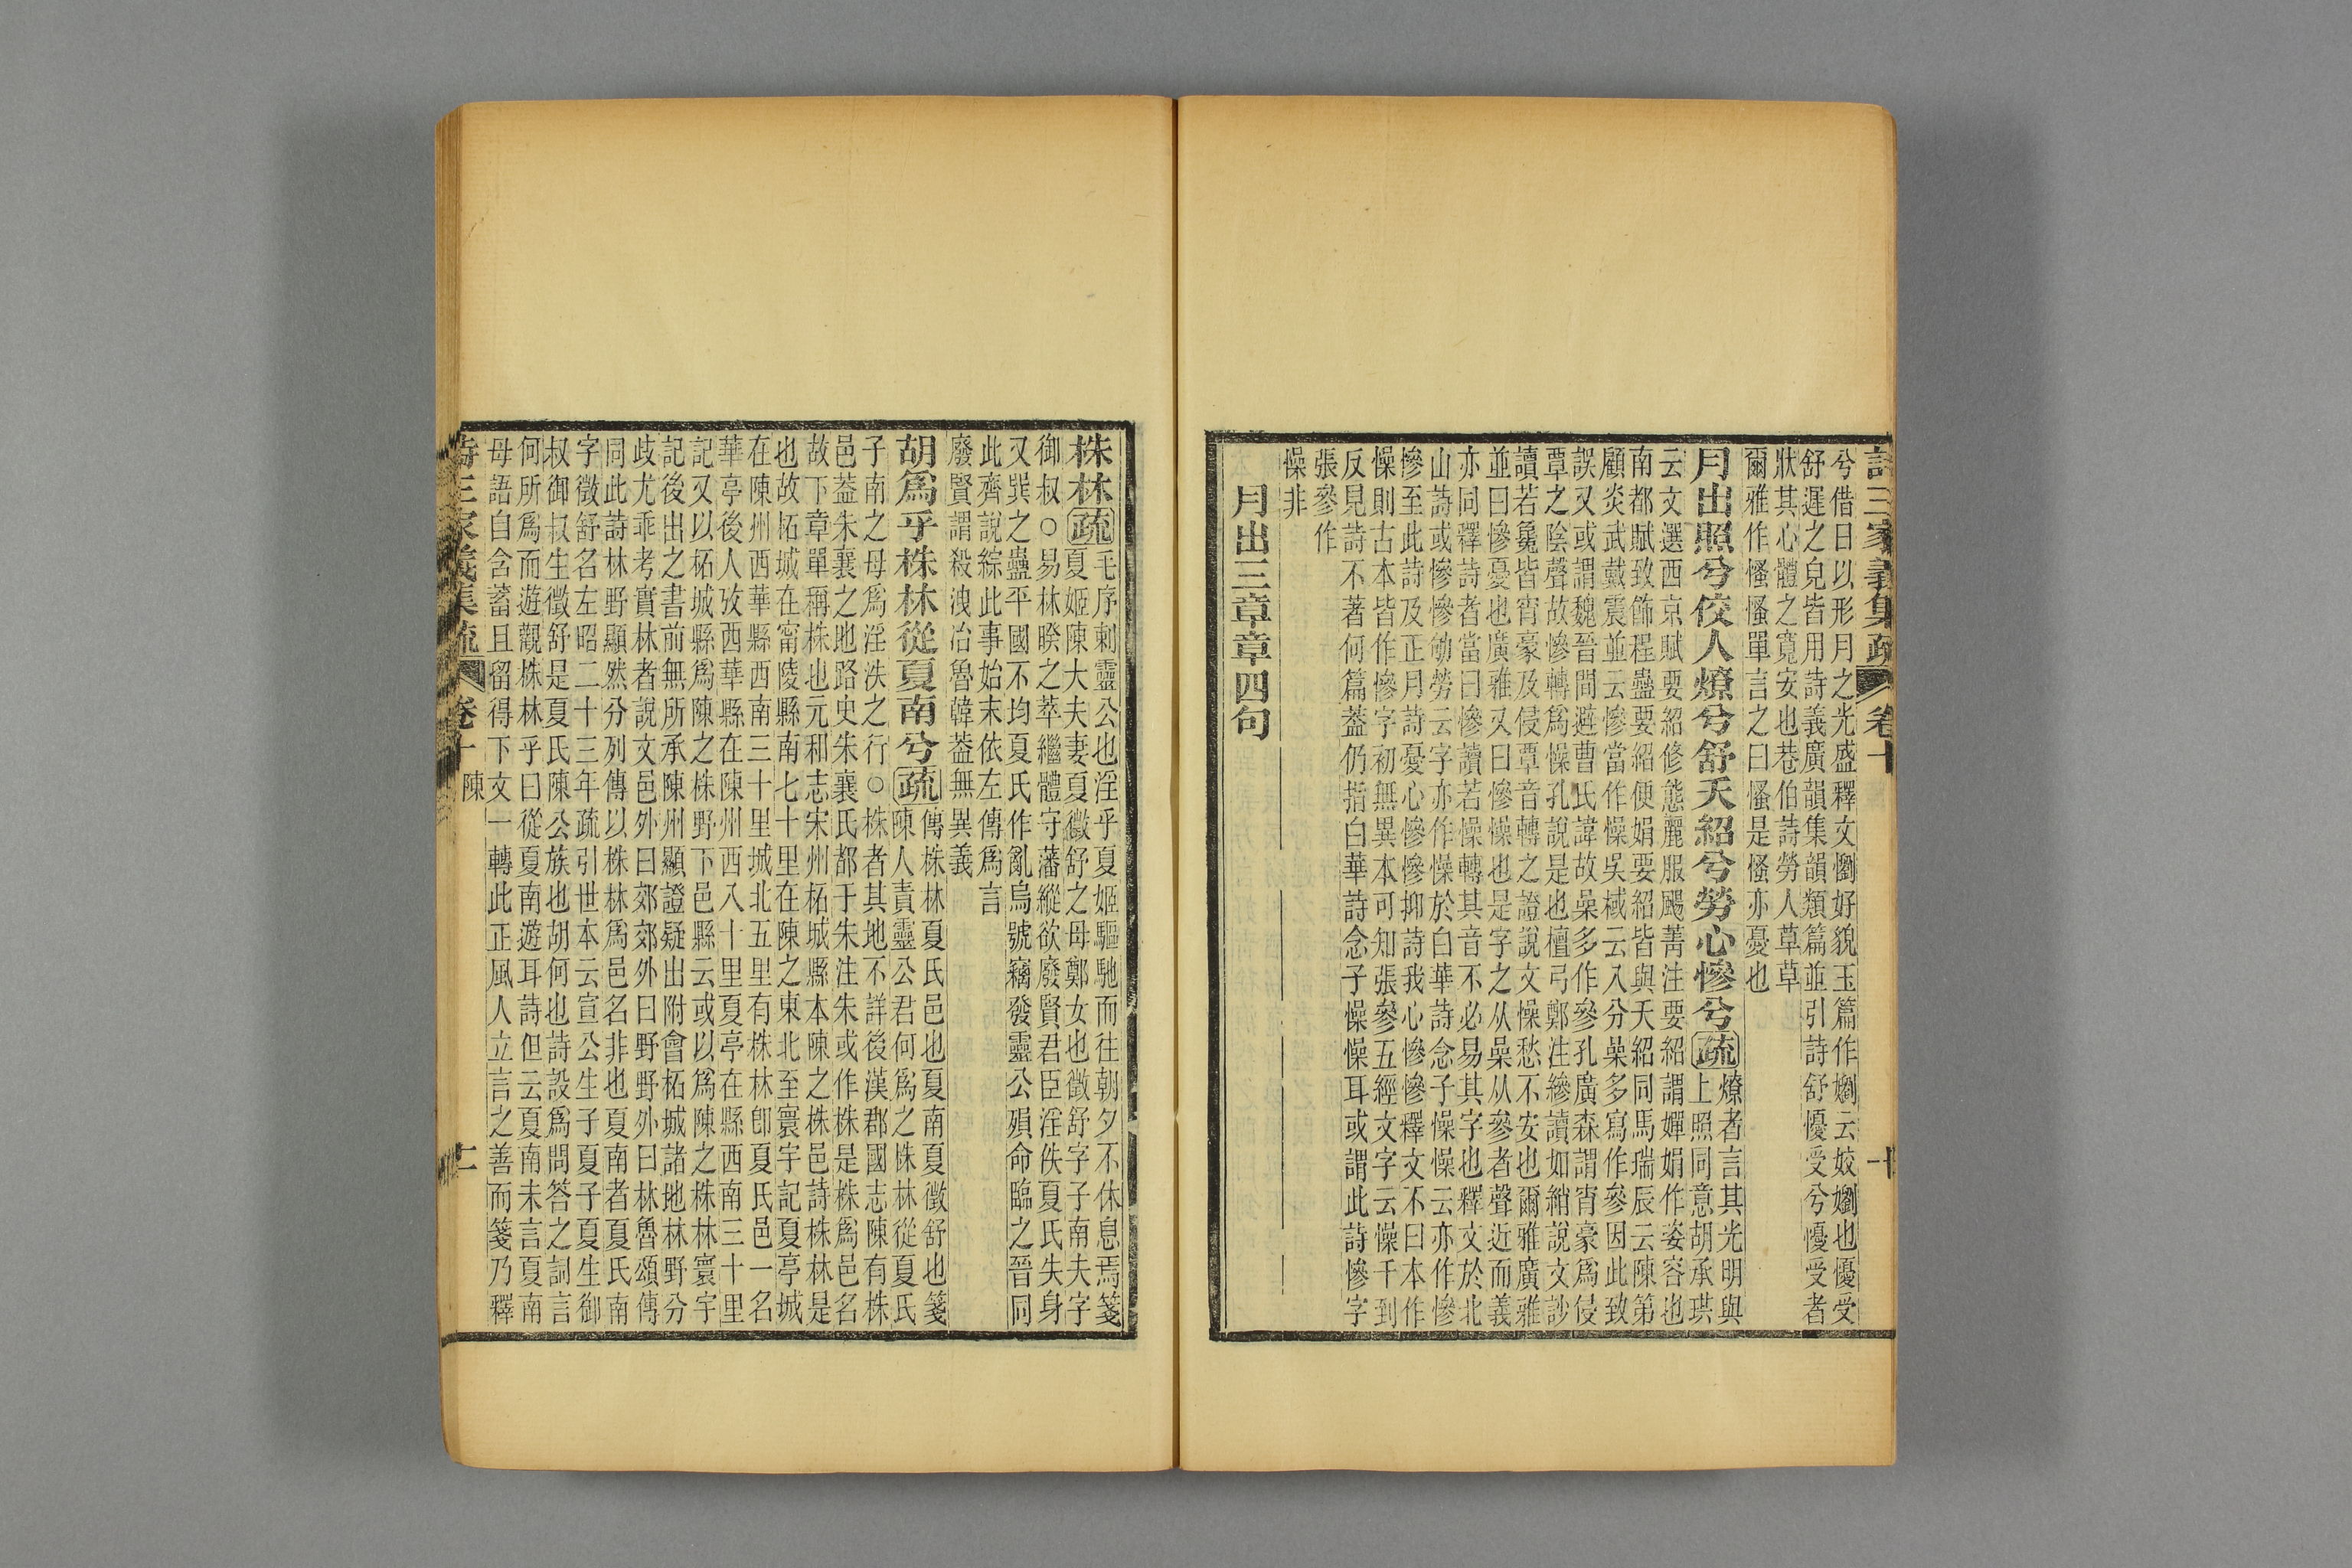 詩三家義集疏 卷十 十
兮借日以形月之光盛釋文懰好貌玉篇作嬼云姣嬼也慢受
舒遲之皃皆用詩義廣韻集韻類篇並引詩舒慢受兮慢受者
狀其心體之寬安也巷伯詩勞人草草
爾雅作慅慅單言之曰慅是慅亦憂也
月出照兮佼人燎兮舒夭紹兮勞心慘兮疏
燎者言其光明與
上照同意胡承珙
云文選西京賦要紹修態麗服颺菁注要紹謂嬋娟作姿容也
南都賦致飾程蠱要紹便娟要紹皆與夭紹同馬瑞辰云陳第
顧炎武戴震並云慘當作懆吳棫云入分喿多寫作參因此致
誤又或謂魏晉間避曹氏諱故喿多作參孔廣森謂宵豪爲侵
覃之陰聲故慘轉爲懆孔說是也檀弓鄭注縿讀如綃說文訬
讀若毚皆宵豪及侵覃音轉之證說文懆愁不安也爾雅廣雅
並曰慘憂也廣雅又曰慘懆也是字之从喿从參者聲近而義
亦同釋詩者當曰慘讀若懆轉其音不必易其字也釋文於北
山詩或慘慘劬勞云字亦作懆於白華詩念子懆懆云亦作慘
慘至此詩及正月詩憂心慘慘抑詩我心慘慘釋文不曰本作
懆則古本皆作慘字初無異本可知張參五經文字云懆千到
反見詩不著何篇葢仍指白華詩念子懆懆耳或謂此詩慘字
張參作
懆非
月出三章章四句
株林疏
毛序刺靈公也淫乎夏姬驅馳而往朝夕不休息焉箋
夏姬陳大夫妻夏徵舒之母鄭女也徵舒字子南夫字
御叔○易林暌之萃繼體守藩縱欲廢賢君臣淫佚夏氏失身
又巽之蠱平國不均夏氏作亂烏號竊發靈公殞命臨之晉同
此齊說綜此事始末依左傳爲言
廢賢謂殺洩冶魯韓葢無異義
胡爲乎株林從夏南兮疏
傳株林夏氏邑也夏南夏徵舒也箋
陳人責靈公君何爲之株林從夏氏
子南之母爲淫泆之行○株者其地不詳後漢郡國志陳有株
邑葢朱襄之地路史朱襄氏都于朱注朱或作株是株爲邑名
故下章單稱株也元和志宋州柘城縣本陳之株邑詩株林是
也故柘城在甯陵縣南七十里在陳之東北至寰宇記夏亭城
在陳州西華縣西南三十里城北五里有株林卽夏氏邑一名
華亭後人攷西華縣在陳州西入十里夏亭在縣西南三十里
記又以柘城縣爲陳之株野下邑縣云或以爲陳之株林寰宇
記後出之書前無所承陳州顯證疑出附會柘城諸地林野分
歧尤乖考實林者說文邑外曰郊郊外曰野野外曰林魯頌傳
同此詩林野顯然分列傳以株林爲邑名非也夏南者夏氏南
字徵舒名左昭二十三年疏引世本云宣公生子夏子夏生御
叔御叔生徵舒是夏氏陳公族也胡何也詩設爲問答之詞言
何所爲而遊觀株林乎曰從夏南遊耳詩但云夏南未言夏南
母語自含蓄且留得下文一轉此正風人立言之善而箋乃釋
詩三家義集疏 卷十 陳 十一